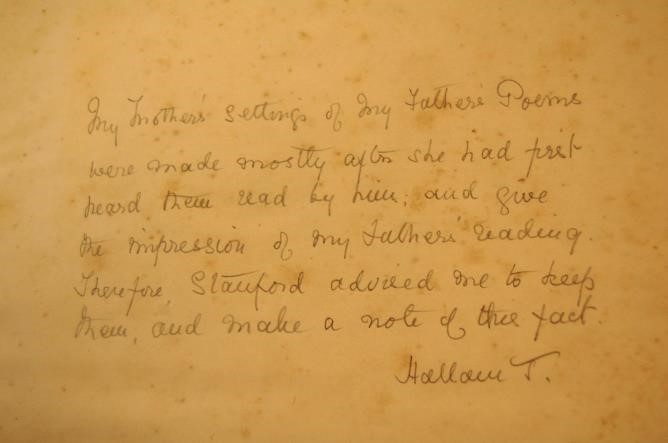 My Mother's settings of My Father's Poems
were made mostly after she had first
heard them read by him; and give
the impression of my Father's reading.
Therefore, Stanford advised me to keep
them, and make a note of this fact.
Hallam T.